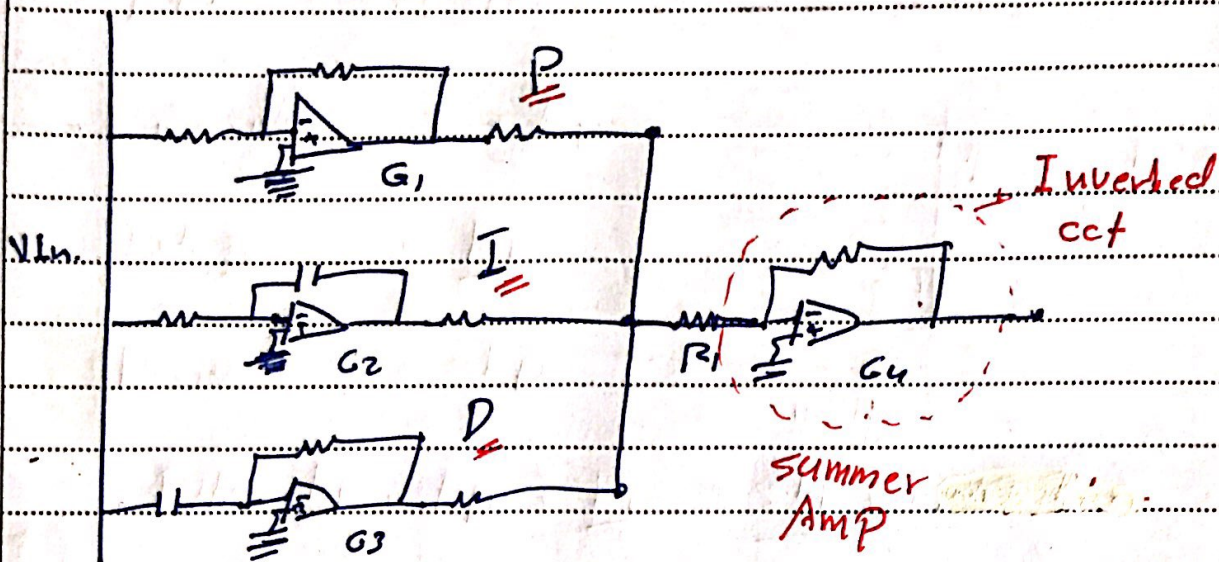 P
G1
Inverted
cct
VIn.
I
G2
R1
G4
D
summer
Amp
G3